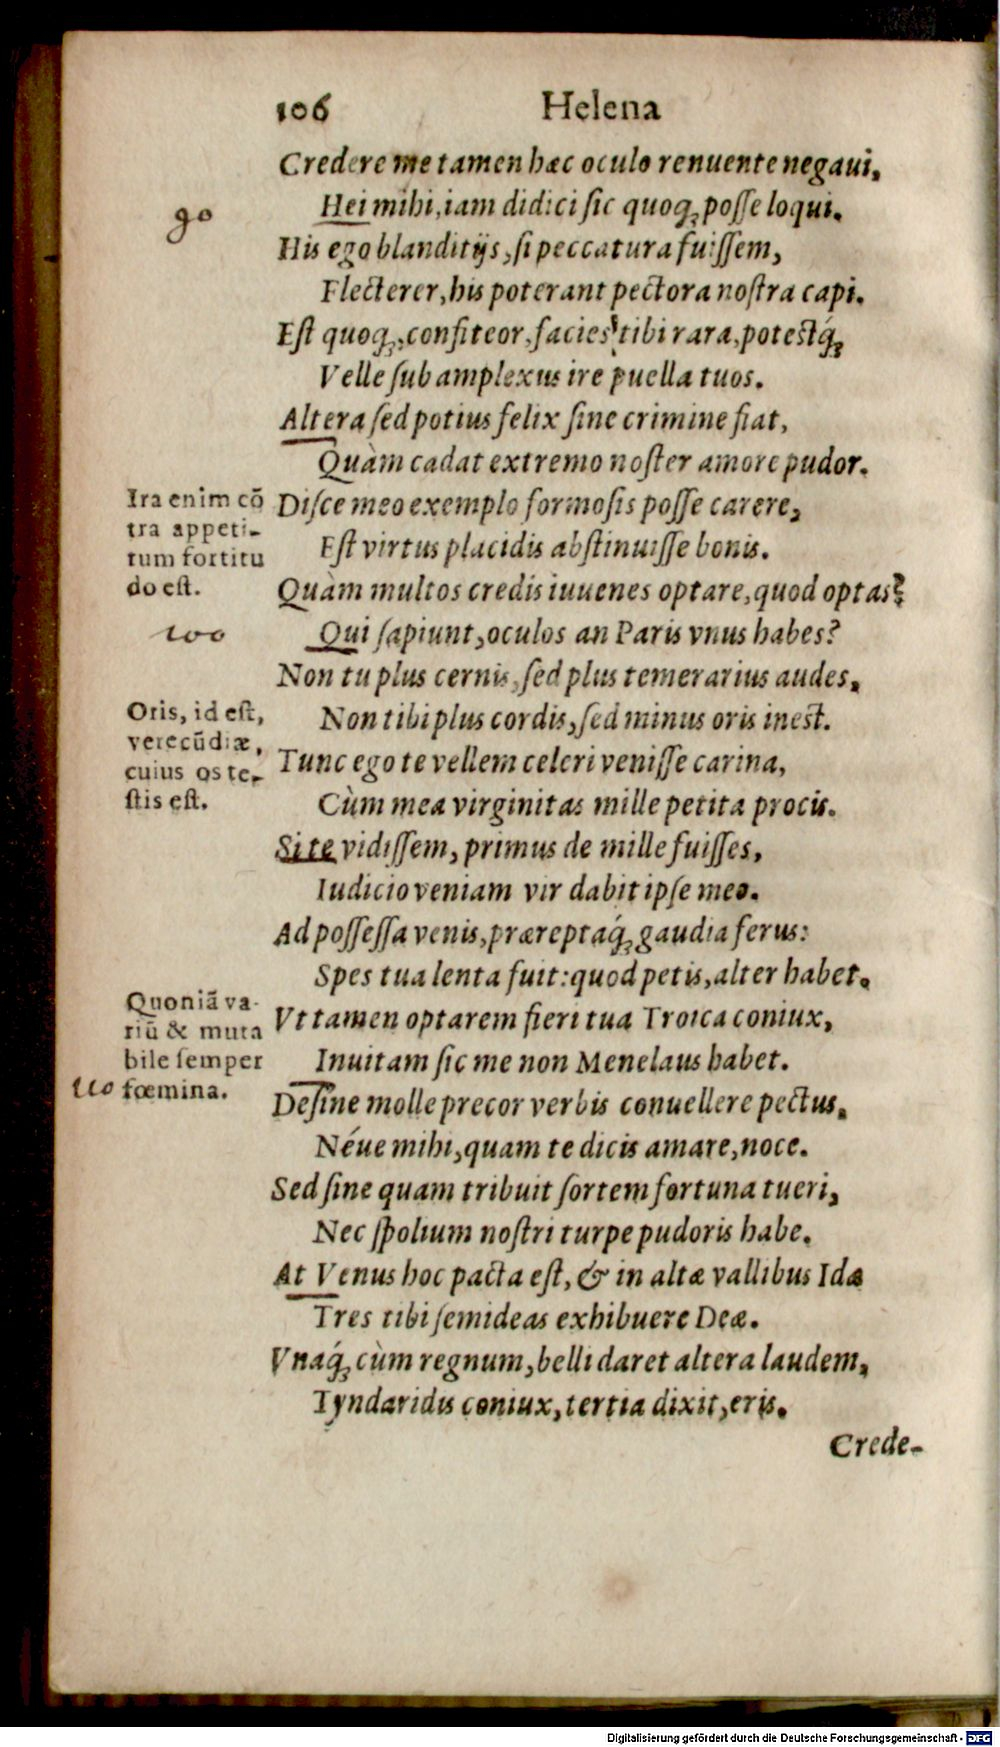 106 Helena
Credere me tamen hæc oculo renuente negaui,
90
Hei mihi, iam didici sic quoq; posse loqui.
His ego blanditijs, si peccatura fuissem,
Flecterer, his poterant pectora nostra capi.
Est quoq;, confiteor, facies tibi rara, potestq́;
Velle sub amplexus ire puella tuos.
Altera sed potius felix sine crimine fiat,
Quàm cadat extremo noster amore pudor.
Ira enim cō
tra appeti-
tum fortitu
do est.
Disce meo exemplo formosis posse carere,
Est virtus placidis abstinuisse bonis.
Quàm multos credis iuuenes optare, quod optas?
100
Qui sapiunt, oculos an Paris vnus habes?
Non tu plus cernis, sed plus temerarius audes,
Oris, id est,
verecūdiæ,
cuius os te-
stis est.
Non tibi plus cordis, sed minus oris inest.
Tunc ego te vellem celeri venisse carina,
Cùm mea virginitas mille petita procis.
Si te vidissem, primus de mille fuisses,
Iudicio veniam vir dabit ipse meo.
Ad possessa venis, præreptaq́; gaudia ferus:
Spes tua lenta fuit: quod petis, alter habet.
Quoniā va-
riū & muta
bile semper
fœmina.
110
Vt tamen optarem fieri tua Troica coniux,
Inuitam sic me non Menelaus habet.
Desine molle precor verbis conuellere pectus,
Néue mihi, quam te dicis amare, noce.
Sed sine quam tribuit sortem fortuna tueri,
Nec spolium nostri turpe pudoris habe.
At Venus hoc pacta est, & in altæ vallibus Idæ
Tres tibi semideas exhibuere Deæ.
Vnaq́; cùm regnum, belli daret altera laudem,
Tyndaridis coniux, tertia dixit, eris.
Crede-
Digitalisierung gefördert durch die Deutsche Forschungsgemeinschaft - DFG